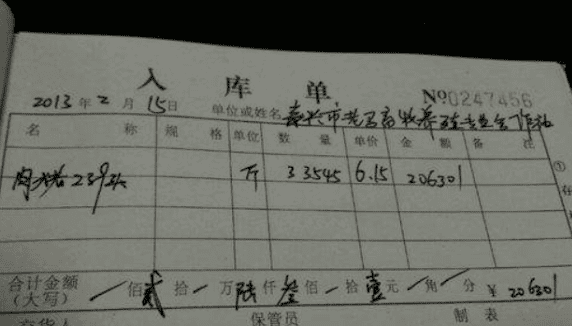 入库单
2013年2月15日 单位或姓名 市 养 专业合作社 №0247456
名称 规格 单位 数量 单价 金额 备注
239头 斤 33545 6.15 206301
①
合计金额(大写) / 佰 贰 拾 / 万 陆 仟 叁 佰 / 拾 壹 元 / 角 / 分 ¥ 206301
交货人 保管员 制表